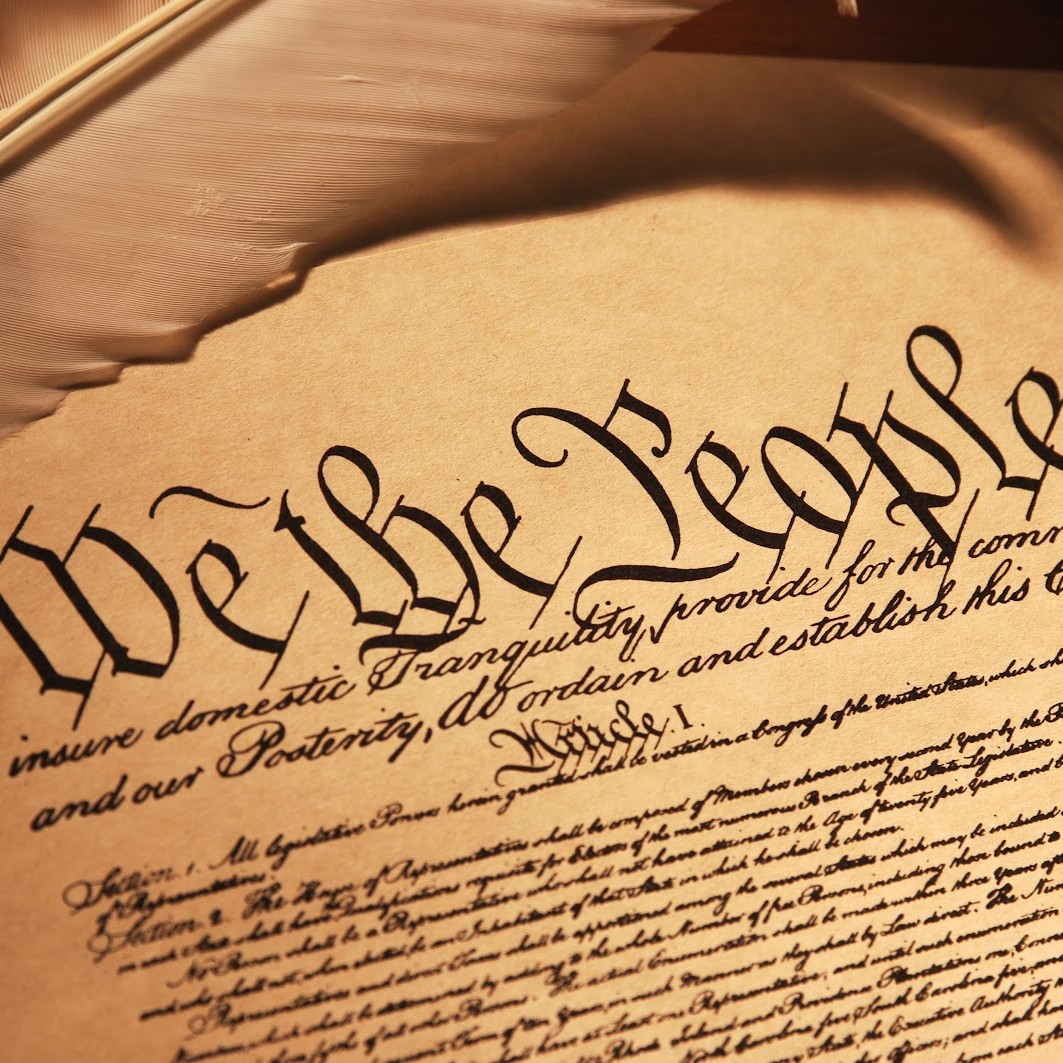 We the People
insure domestic Tranquility, provide for the comm
and our Posterity, do ordain and establish this C
Article. I.
Section. 1. All legislative Powers herein granted shall be vested in a Congress of the United States, which sh
of Representatives.
Section. 2. The House of Representatives shall be composed of Members chosen every second Year by the
in each State shall have Qualifications requisite for Electors of the most numerous Branch of the State Legislature.
No Person shall be a Representative who shall not have attained to the Age of twenty five Years, and
and who shall not, when elected, be an Inhabitant of that State in which he shall be chosen.
Representatives and direct Taxes shall be apportioned among the several States which may be included
shall be determined by adding to the whole Number of free Persons, including those bound to
of all other Persons. The actual Enumeration shall be made within three Years
Term of ten Years, in such Manner as they shall by Law direct. The
shall have at Least one Representative; and until such enumeration
Rhode Island and Providence Plantations one,
North Carolina five, South Carolina five, and
State, the Executive Authority
Officers; and shall